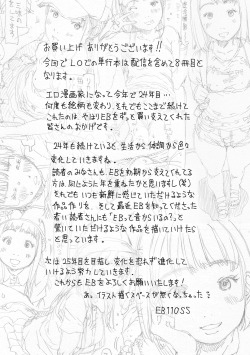 お買い上げ ありがとうございます!!
今回でLOでの単行本は配信を含めて8冊目と
なります。
エロ漫画家になって今年で24年目…
何度も絵柄も変わり、それでもここまで続けて
これたのは、やはりEBをずっと買い支えてくれた
皆さんのおかげです。
24年も続けていると 生活から体調から色々
変化していきますね。
読者のみなさんも EBを初期から支えてくれてる
方は 同じように年を重ねたかと思いますし(笑)
それでも いつも新鮮に感じていただけるような
作品作り を、そして最近EBを知ってくださった
若い読者さんにも「EBって昔からいるの?」と
驚いていただけるような作品を描いていけたら
と思っています。
次は25年目を目指し 変化を恐れず進化して
いけるよう努力していきます。
これからも EBをよろしくお願いいたします!
あ。イラスト描くスペースが無くなっちゃった
EB110SS